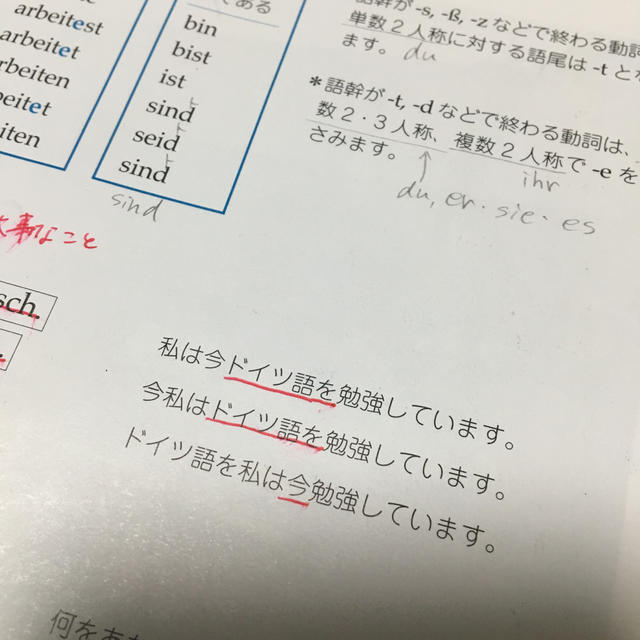 arbeitest
arbeitet
arbeiten
arbeitet
である
bin
bist
ist
sind
seid
sind
sind
ト
ト
ト
-s, -ß, -z などで終わる動詞
単数2人称に対する語尾は -t と
ます。 du
*語幹が -t, -d などで終わる動詞は、
数2・3人称、複数2人称で -e を
さみます。
ihr
du, er・sie・es
大事なこと
sch.
私は今ドイツ語を勉強しています。
今私はドイツ語を勉強しています。
ドイツ語を私は今勉強しています。
何を